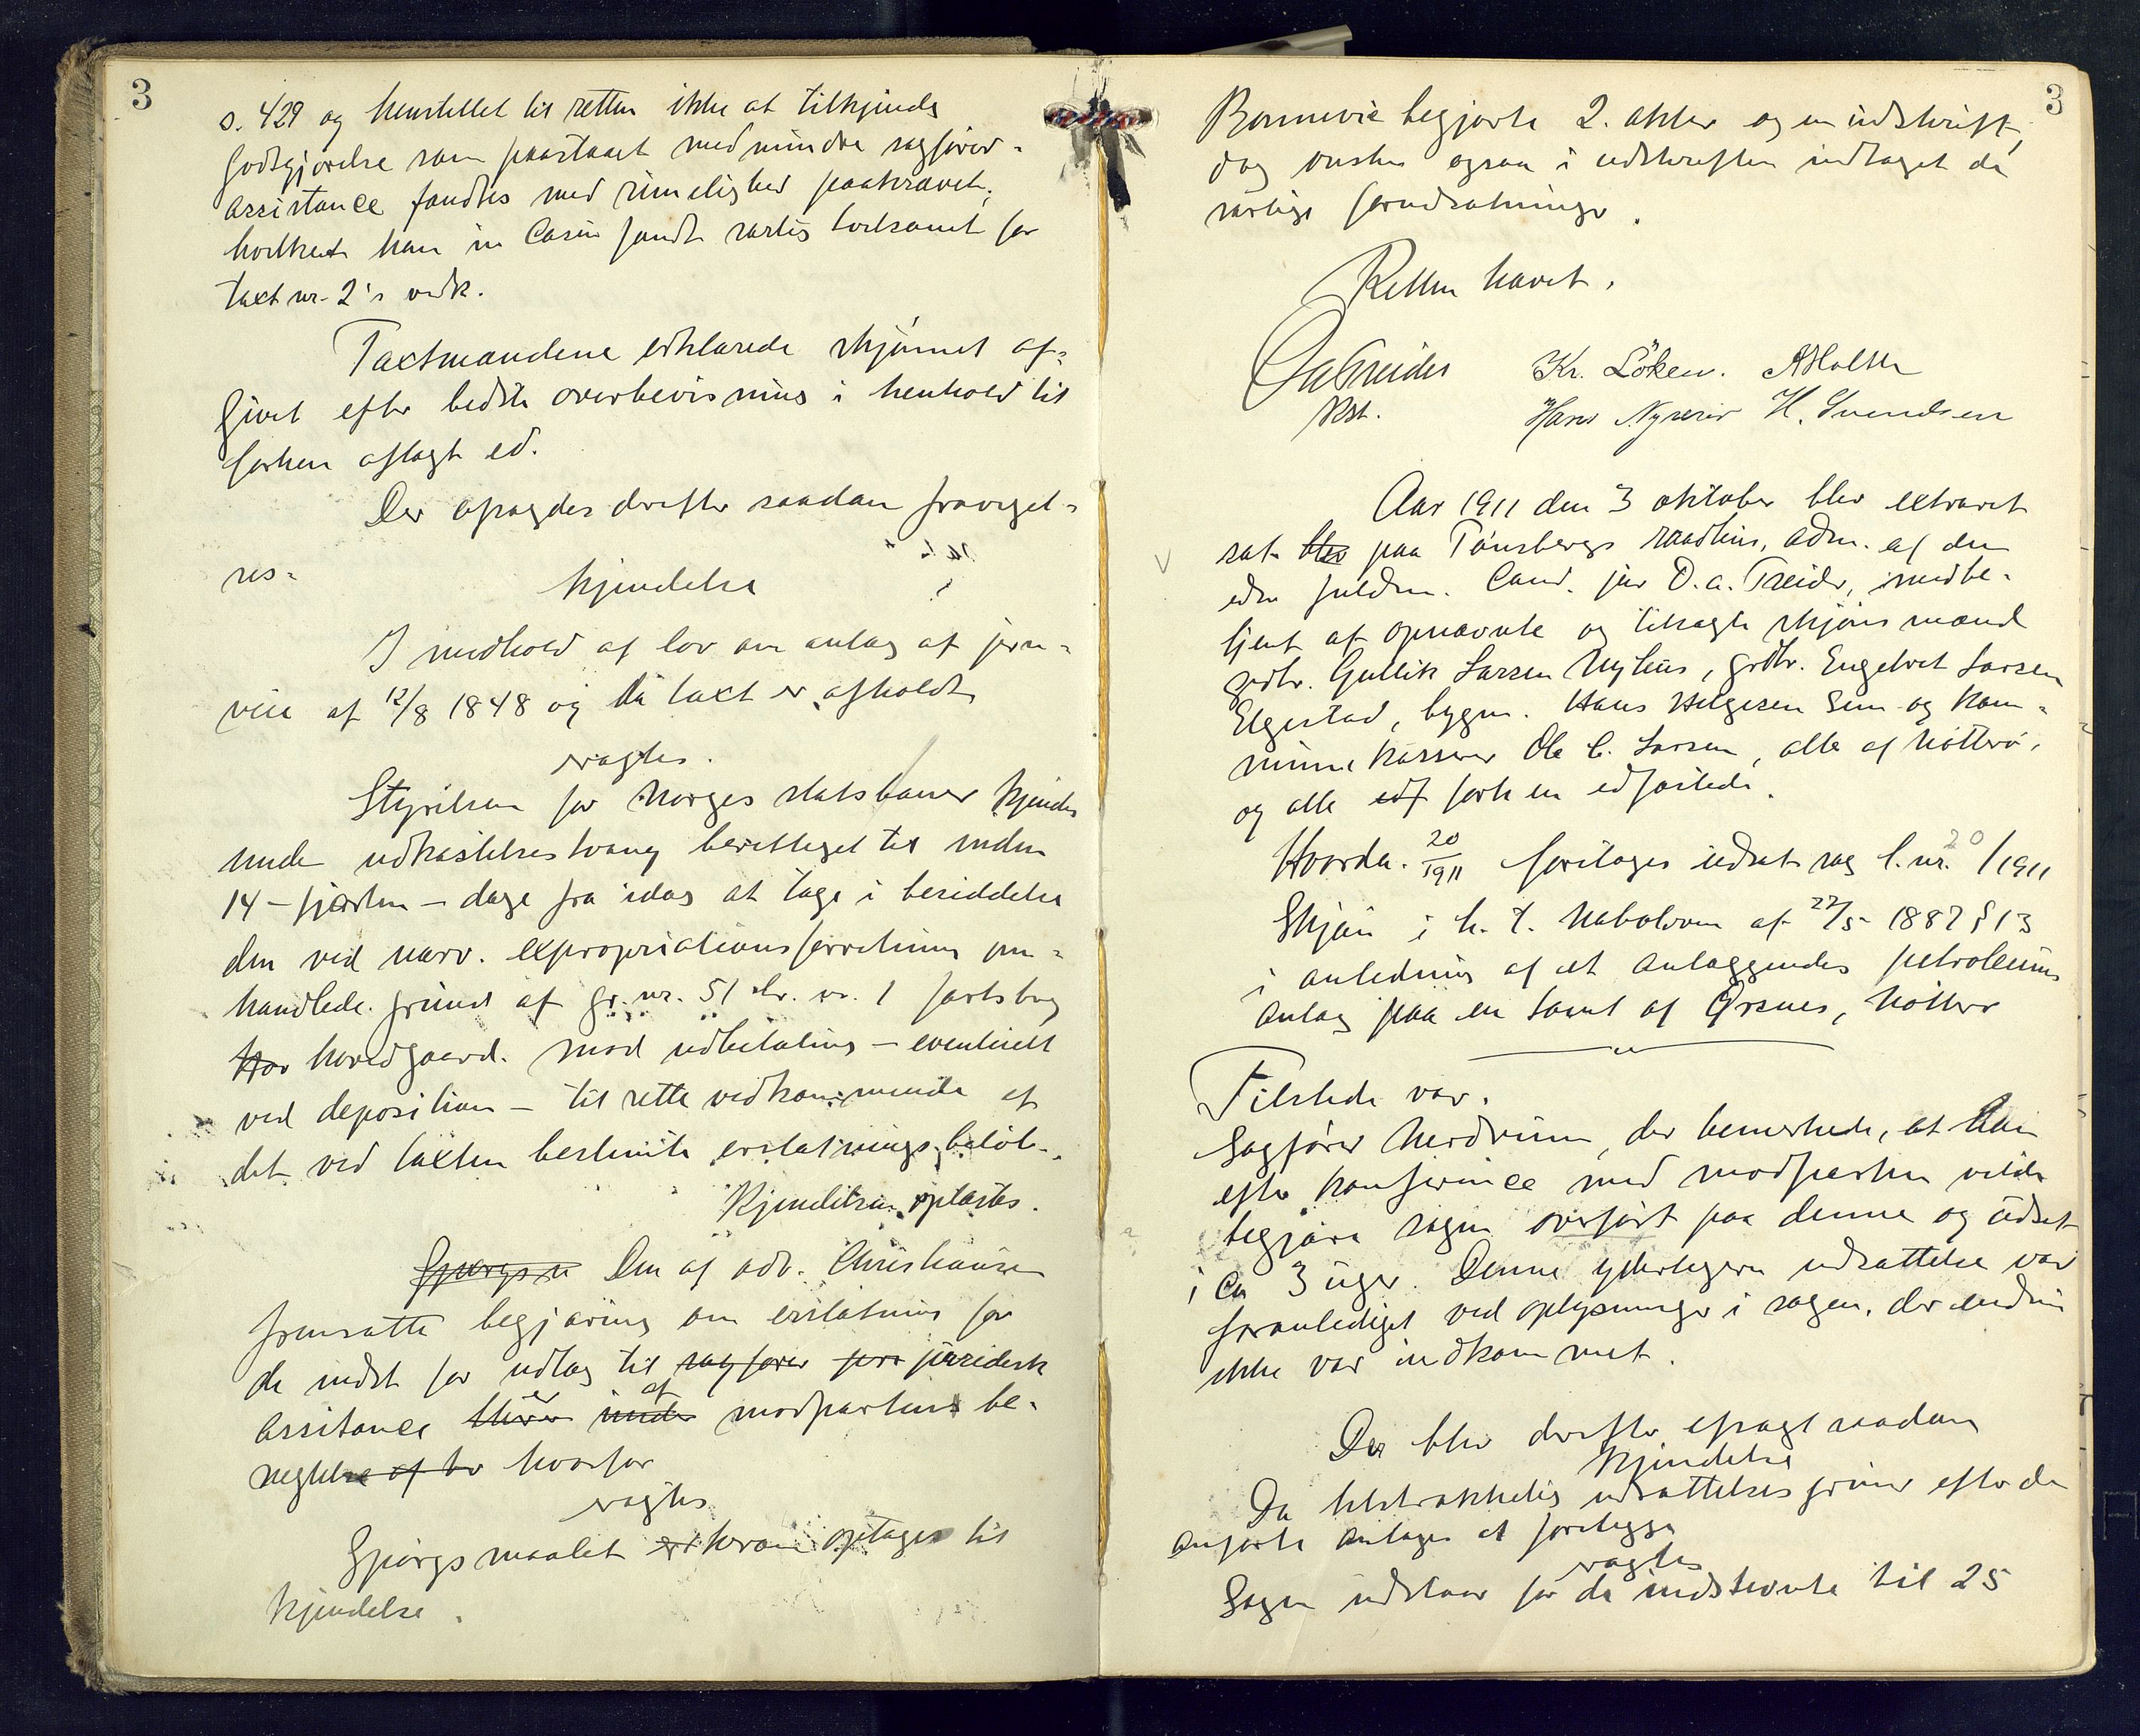 3
s. 429 og henstillet til retten ikke at tilkjende
godtgjørelse som paastaaet medmindre sagfører-
assistance fandtes med rimelighed paakrævet,
hvilket han in casu fandt særlig tvilsomt for
taxt nr. 2's vedk.
Taxtmændene erklærede skjønnet af-
givet efter bedste overbevisning i henhold til
forhen aflagt ed.
Der afsagdes derefter saadan
kjendelse
I medhold af lov om anlæg af jern-
veie af 12/8 1848 og da taxt er afholdt
sagtes.
Styrelsen for Norges statsbaner kjendes
under udkastelsestvang berettiget til inden
14 - fjorten - dage fra idag at tage i besiddelse
den ved nærv. expropriationsforretning om-
handlede grund af gr. nr. 51 br. nr. 1 Jarlsberg
hovedgaard. mod udbetaling - eventuelt
ved deposition - til rette vedkommende af
det ved taxten bestemte erstatningsbeløb.
Kjendelsen oplæstes.
Den af adv. Christiansen
fremsatte begjæring om erstatning for
de indst for udlæg til sagfører juridisk
assitance er af modpartens be-
negtelse af hvorfor
sagtes
Spørgsmaalet herom optages til
kjendelse.
3
Bonnevie begjærte 2. akter og en udskrift,
dog ønskes ogsaa i udskriften indtaget de
særlige forudsætninger.
Retten hævet.
O a Treider Kr. Löken. A Holth
Kst. Hans H. Svendsen
Aar 1911 den 3 oktober blev extraret
sat blev paa Tønsbergs raadhus, adm. af den
edsv fuldm. Cand. jur O. A. Treider, medbe-
tjent af opnævnte og tilsagte skjønsmænd
grdbr. Gullik Larsen Nyhus, grdbr. Engelbret Larsen
Elgestad, bygm. Hans Helgesen Sem og kom-
munekasserer Ole C. Larsen, alle af Nøtterø,
og alle edf forhen edfæstede.
Hvorda. 20/1911 foretages udsat sag l. nr. 20/1911
Skjøn i h. t. Naboloven af 27/5 1887 § 13
i anledning af et anlæggendes petroleums
anlæg paa en tomt af Ørsnes, Nøtterø
Tilstede var.
Sagfører Merdrum, der bemerkede, at han
efter konference med modparten vilde
begjære sagen overført paa denne og udsat
i ca 3 uger. Denne yderligere udsættelse var
foranlediget ved oplysninger i sagen, der endnu
ikke var indkommet.
Der blev derefter afsagt saadan
kjendelse
Da tilstrækkelig udsættelsesgrund efter de
anførte antages at foreligge
sagtes
Sagen udstaar for de indstevnte til 25